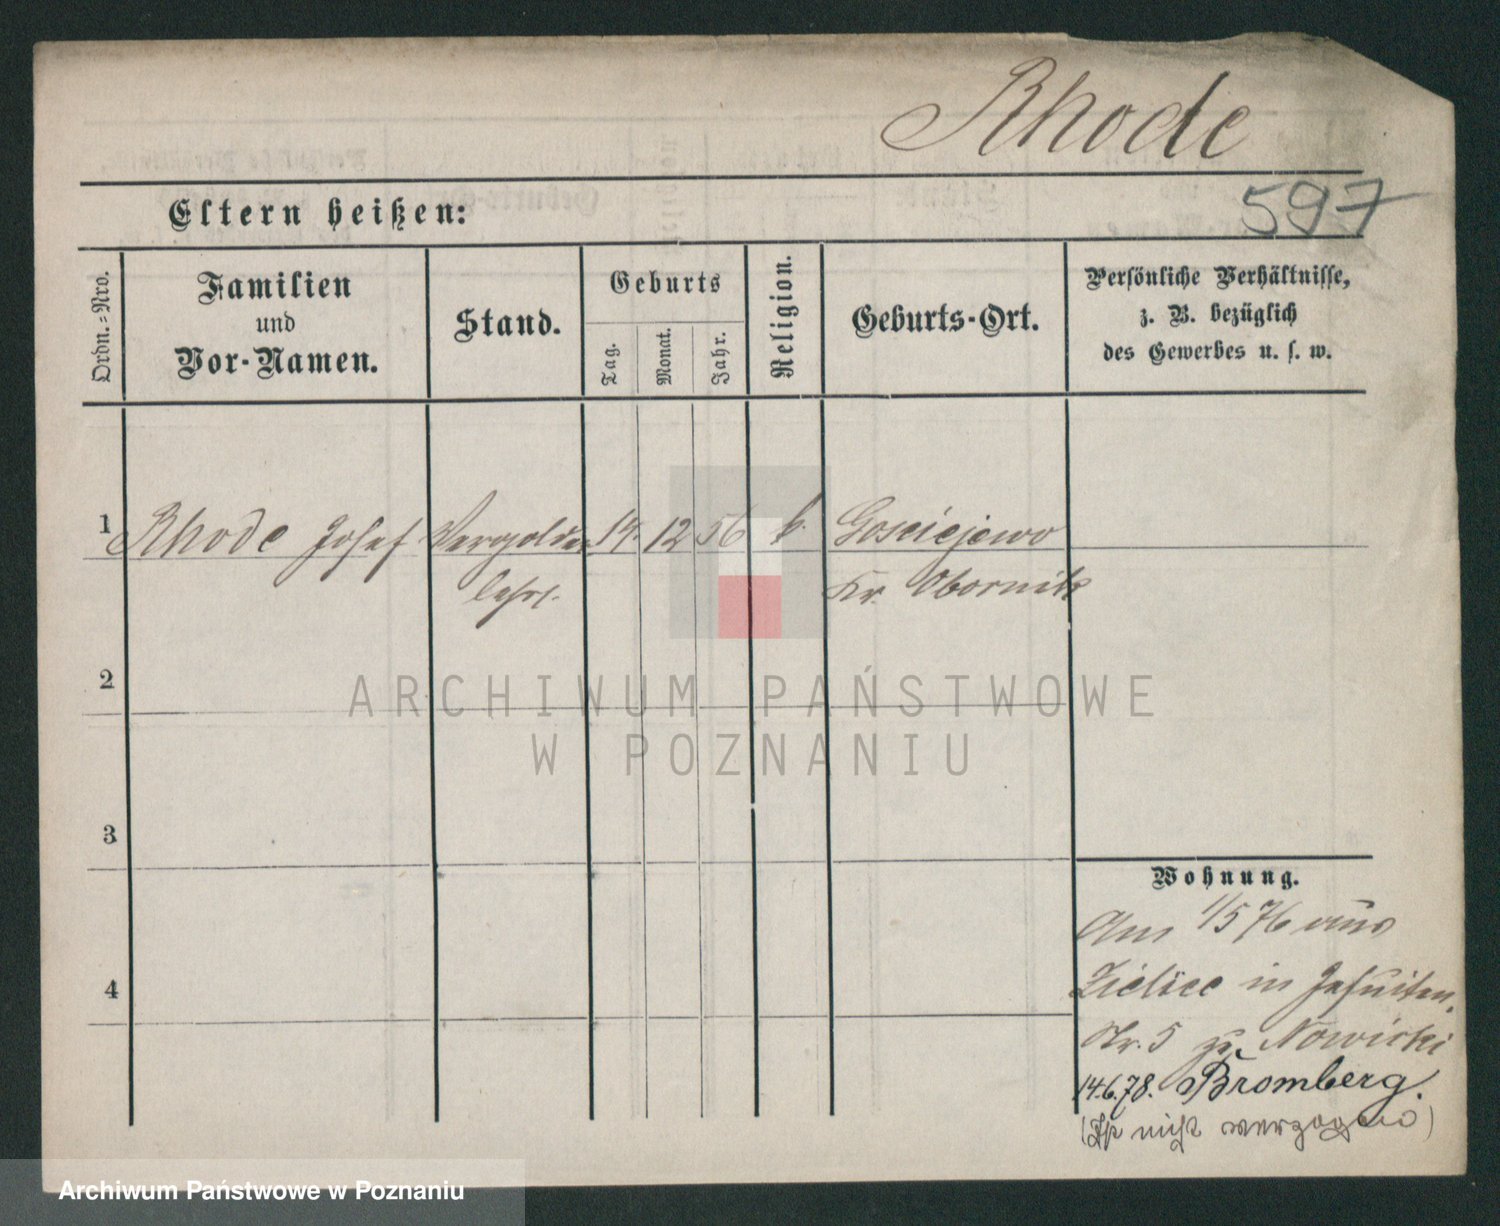 Rhode
597
Eltern heißen:
Ordn.=Nro.
Familien
und
Vor-Namen.
Stand.
Geburts
Tag.
Monat.
Jahr.
Religion.
Geburts-Ort.
Persönliche Verhältnisse,
z. B. bezüglich
des Gewerbes u. s. w.
1 Rhode Josef Vergolder 14. 12 56 k. Gosciejewo
lehrl. Kr. Obornik
2
3
4
Wohnung.
Am 1/5 76 aus
in Jesuiten
Str. 5 zu Nowicki
14.6.78. Bromberg.
(Ist nicht verzogen)
ARCHIWUM PAŃSTWOWE
W POZNANIU
Archiwum Państwowe w Poznaniu